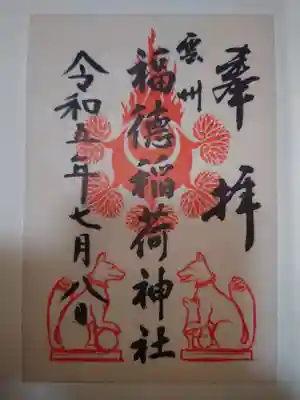 奉拝
雲州
福徳稲荷神社
令和五年七月八日